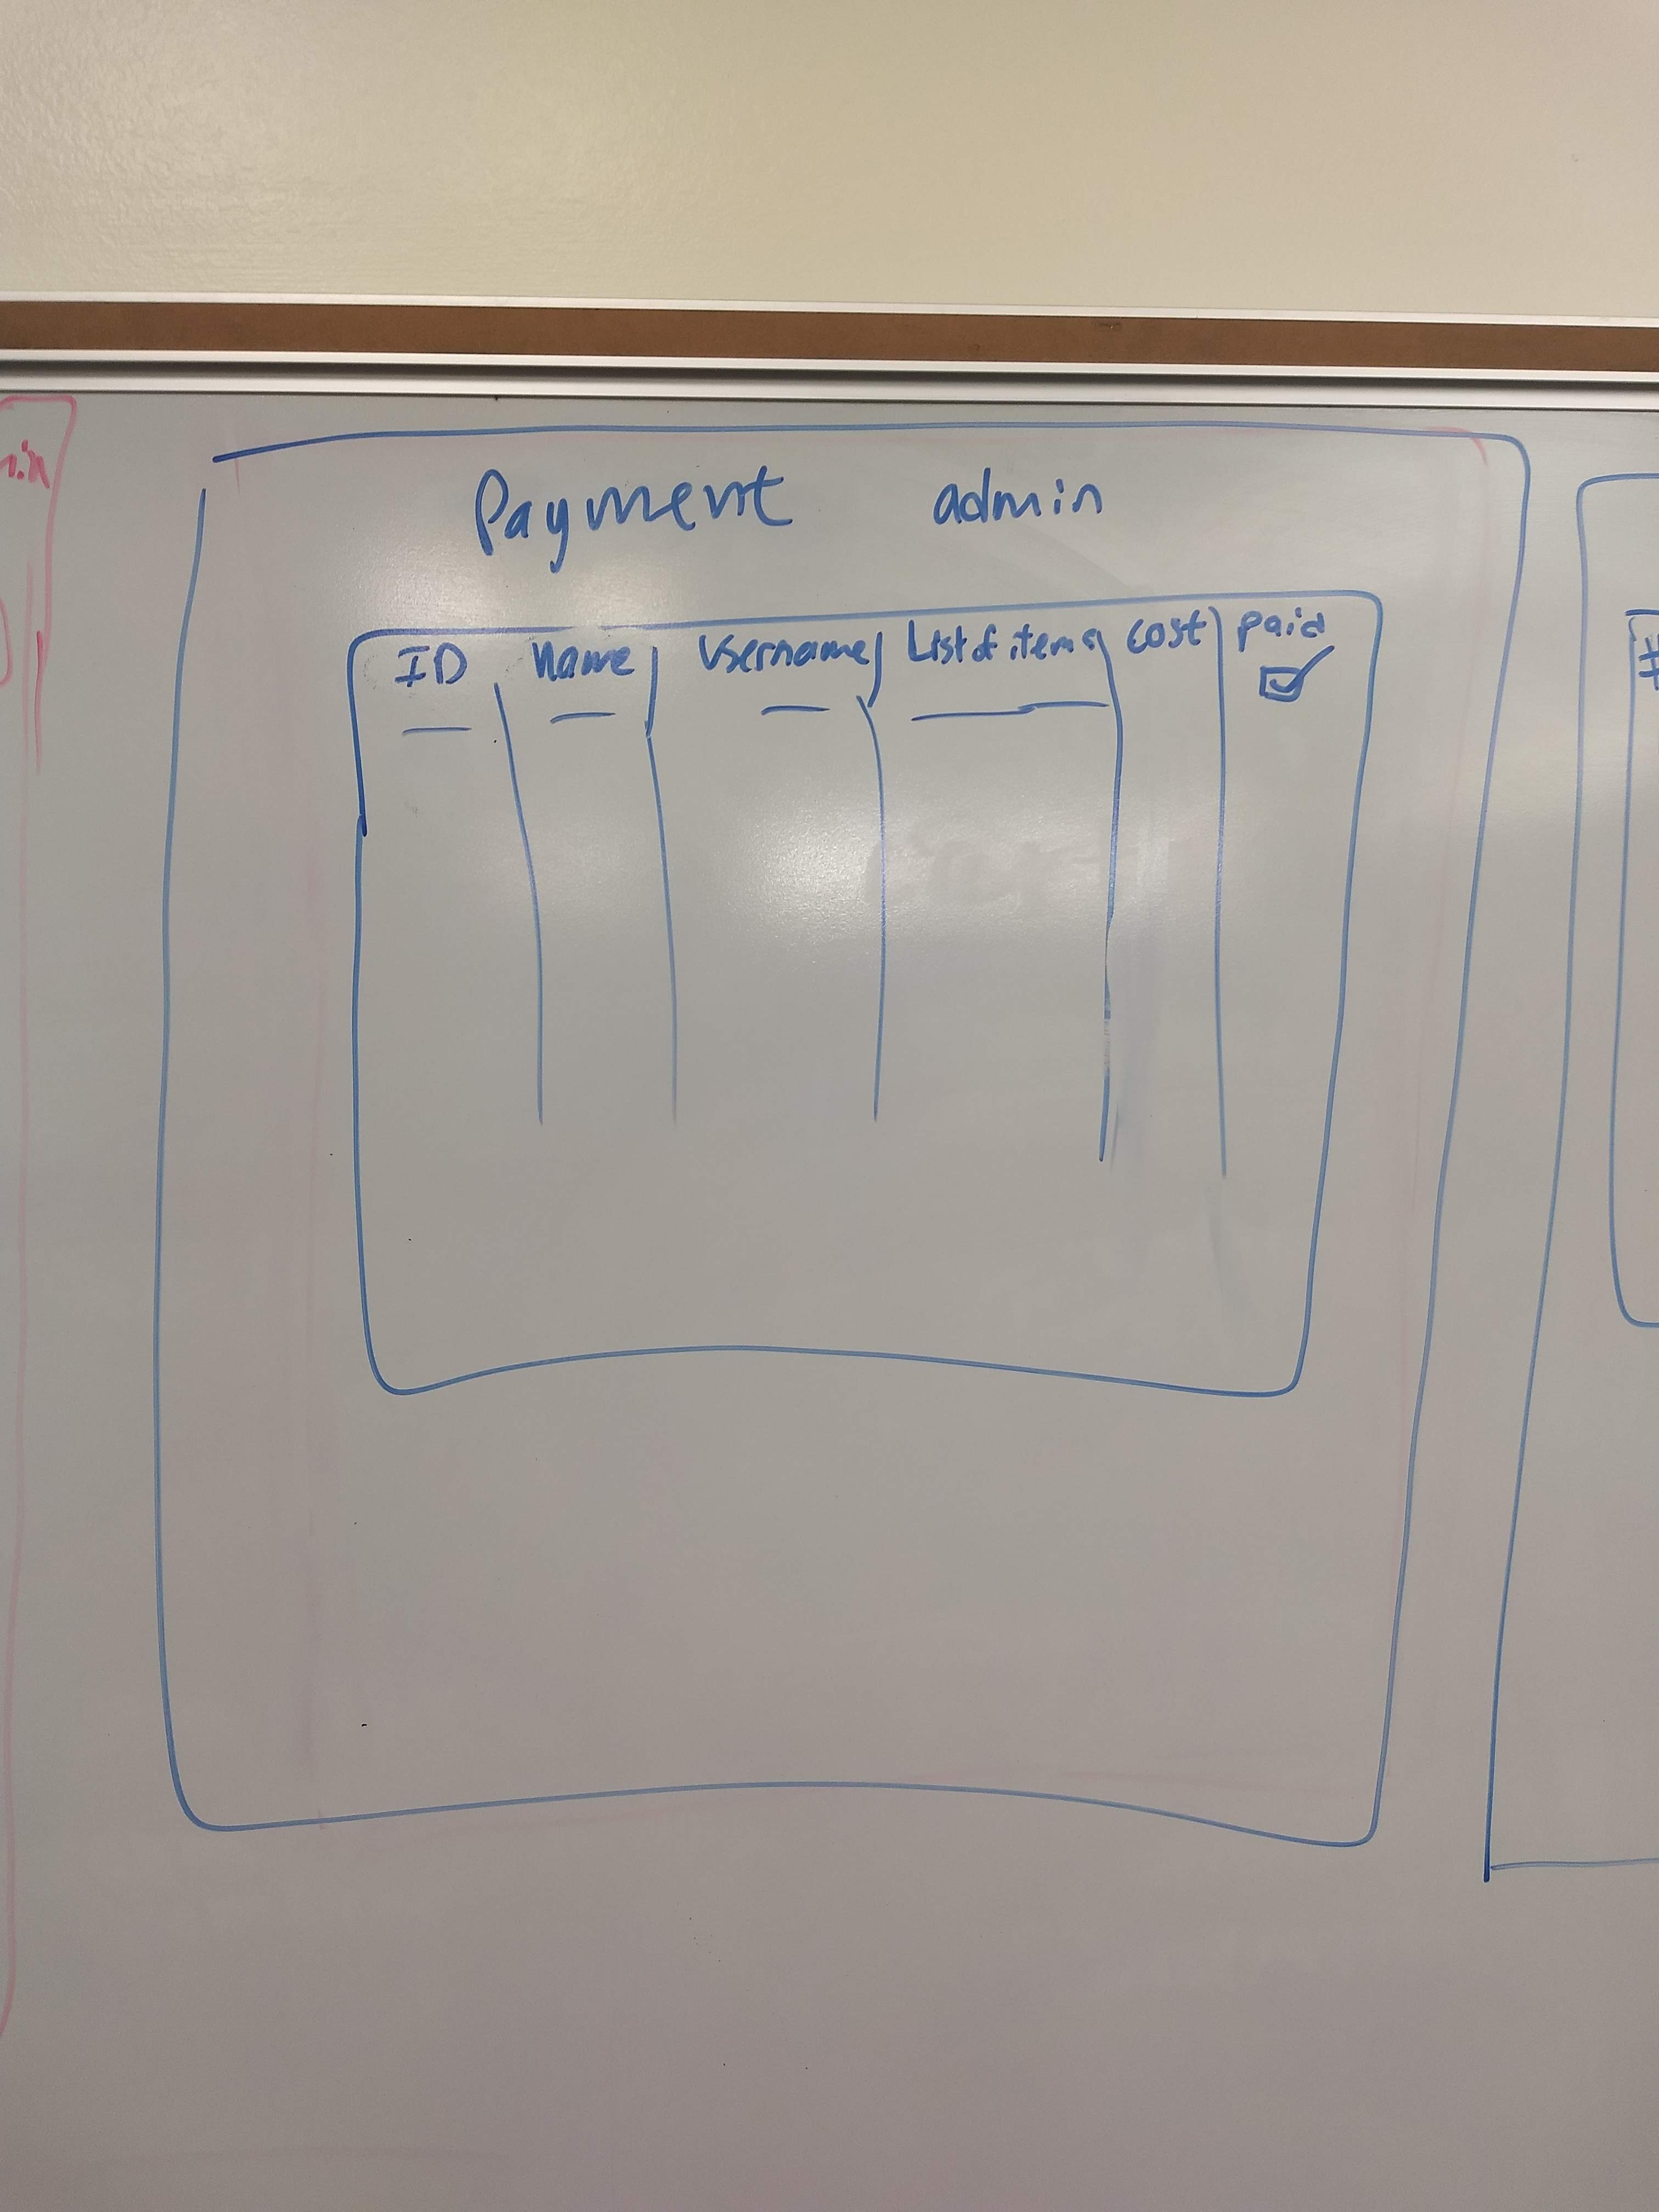 Payment admin
ID Name Username List of items cost paid
#